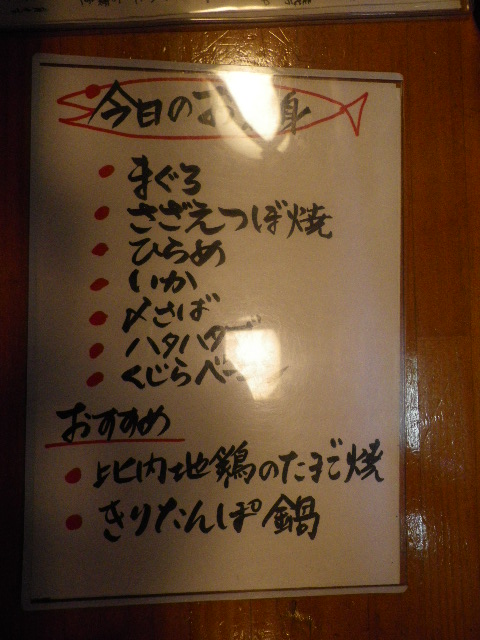 今日のお身
まぐろ
さざえつぼ焼
ひらめ
いか
〆さば
ハタハタ
くじらベーコン
おすすめ
比内地鶏のたまご焼
きりたんぽ鍋